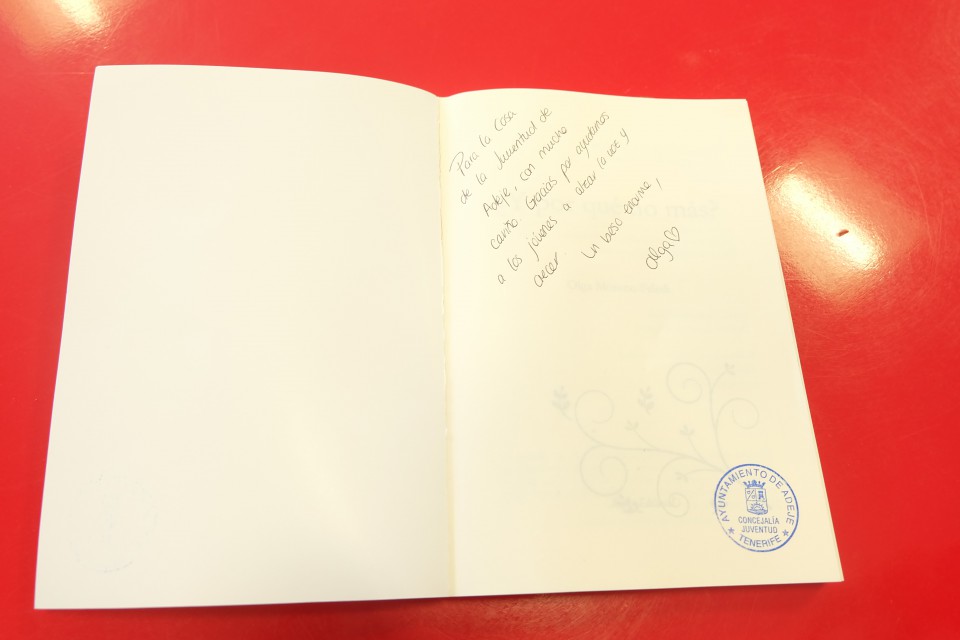 Para la Casa
de la Juventud de
Adeje, con mucho
cariño. Gracias por ayudarnos
a los jóvenes a alzar la voz y
crecer. Un beso enorme,
Olga♡
AYUNTAMIENTO DE ADEJE
CONCEJALÍA
JUVENTUD
TENERIFE